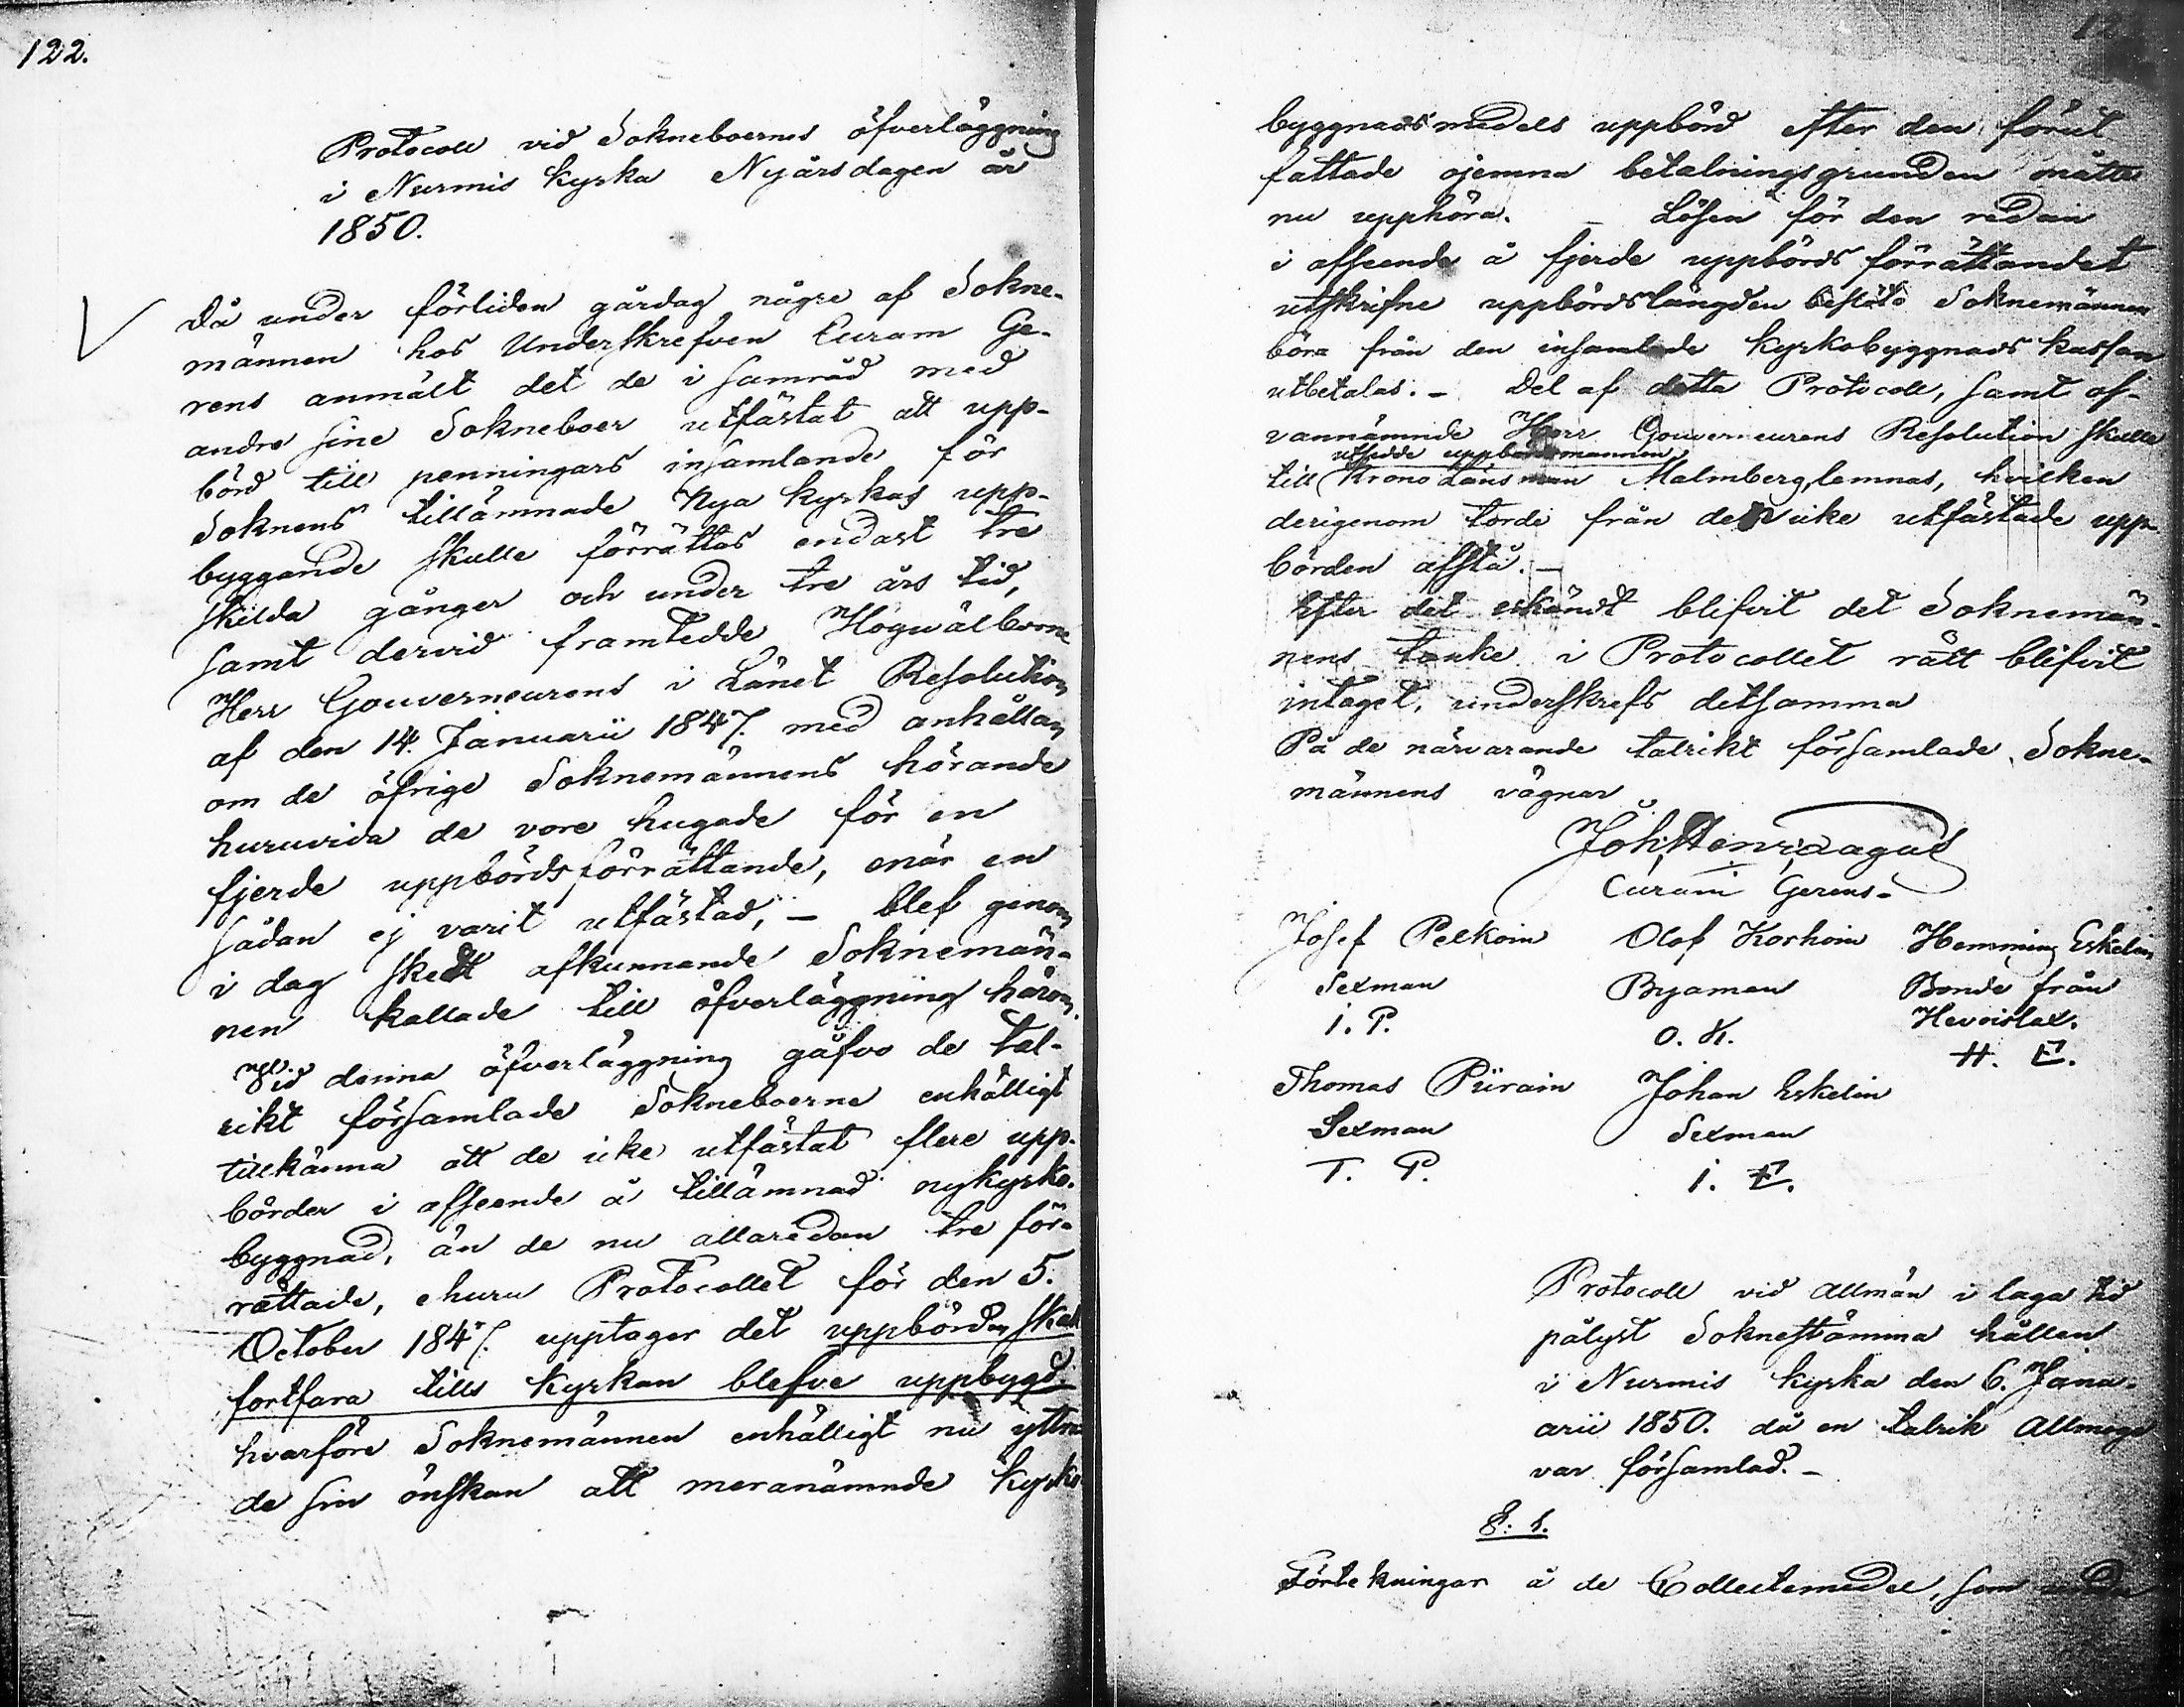 122.
Protocoll vid Sokneboernes öfverläggning
i Nurmis kyrka Nyårsdagen år
1850.
Då under förliden gårdag någre af Sokne-
männen hos Underskrefven Curam Ge-
rens anmält det de i samråd med
andre sine Sokneboer utfästat att upp-
börd till penningars insamlande för
Soknens tillämnade Nya kyrkas upp-
byggande skulle förrättas endast tre
skilda gånger och under tre års tid,
samt dervid framtedde Högwälborne
Herr Gouverneurens i Länet Resolution
af den 14. Januarii 1847. med anhållan
om de öfrige Soknemännens hörande
huruvida de vore hugade för en
fjerde uppbördsförrättande, enär en
sådan ej varit utfästad, – blef genom
i dag skedt afkunnande Soknemän-
nen kallade till öfverläggning härom.
Vid denna öfverläggning gåfvo de tal-
rikt församlade Sokneboerne enhälligt
tillkänna att de icke utfästat flere upp-
börder i afseende å tillämnad nykyrko-
byggnad, än de nu allaredan tre för-
rättade, ehuru Protocollet för den 5.
October 1847. upptager det uppbörden skall
fortfara tills kyrkan blefve uppbygd.
hvarföre Soknemännen enhälligt nu yttra
de sin önskan att meranämnde kyrko
byggnadsmedels uppbörd efter den förut
fattade ojemna betalningsgrunden måtte
nu upphöra. – Lösen för den redan
i afseende å fjerde uppbörds förrättandet
utskrifne uppbördslängden bestöto Soknemännen
böra från den insamlade kyrkobyggnads kassan
utbetalas. – Del af detta Protocoll, samt of-
vannämnde Herr Gouverneurens Resolution skulle
utsedde uppbördsmannen
till Krono Länsman Malmberg, lemnas, hvilken
derigenom torde från den icke utfästade upp-
börden afstå. –
Efter det erkändt blifvit det Soknemän-
nens tanke i Protocollet rätt blifvit
intaget, underskrefs detsamma
På de närvarande talrikt församlade Sokne-
männens vägnar
Joh. Henr.
Curam Gerens.
Josef Pelkoin Olof Korhoin Hemming Eskelin
Sexman Byaman Bonde från
I. P. O. K. Hevoislax.
H. E.
Thomas Piirain Johan Eskelin
Sexman Sexman
T. P. I. E.
Protocoll vid allmän i laga tid
pålyst Soknestämma hållen
i Nurmis kyrka den 6. Janu-
arii 1850. då en talrik Allmoge
var församlad. –
§. 1.
Förtekningar å de Collectemedel, som